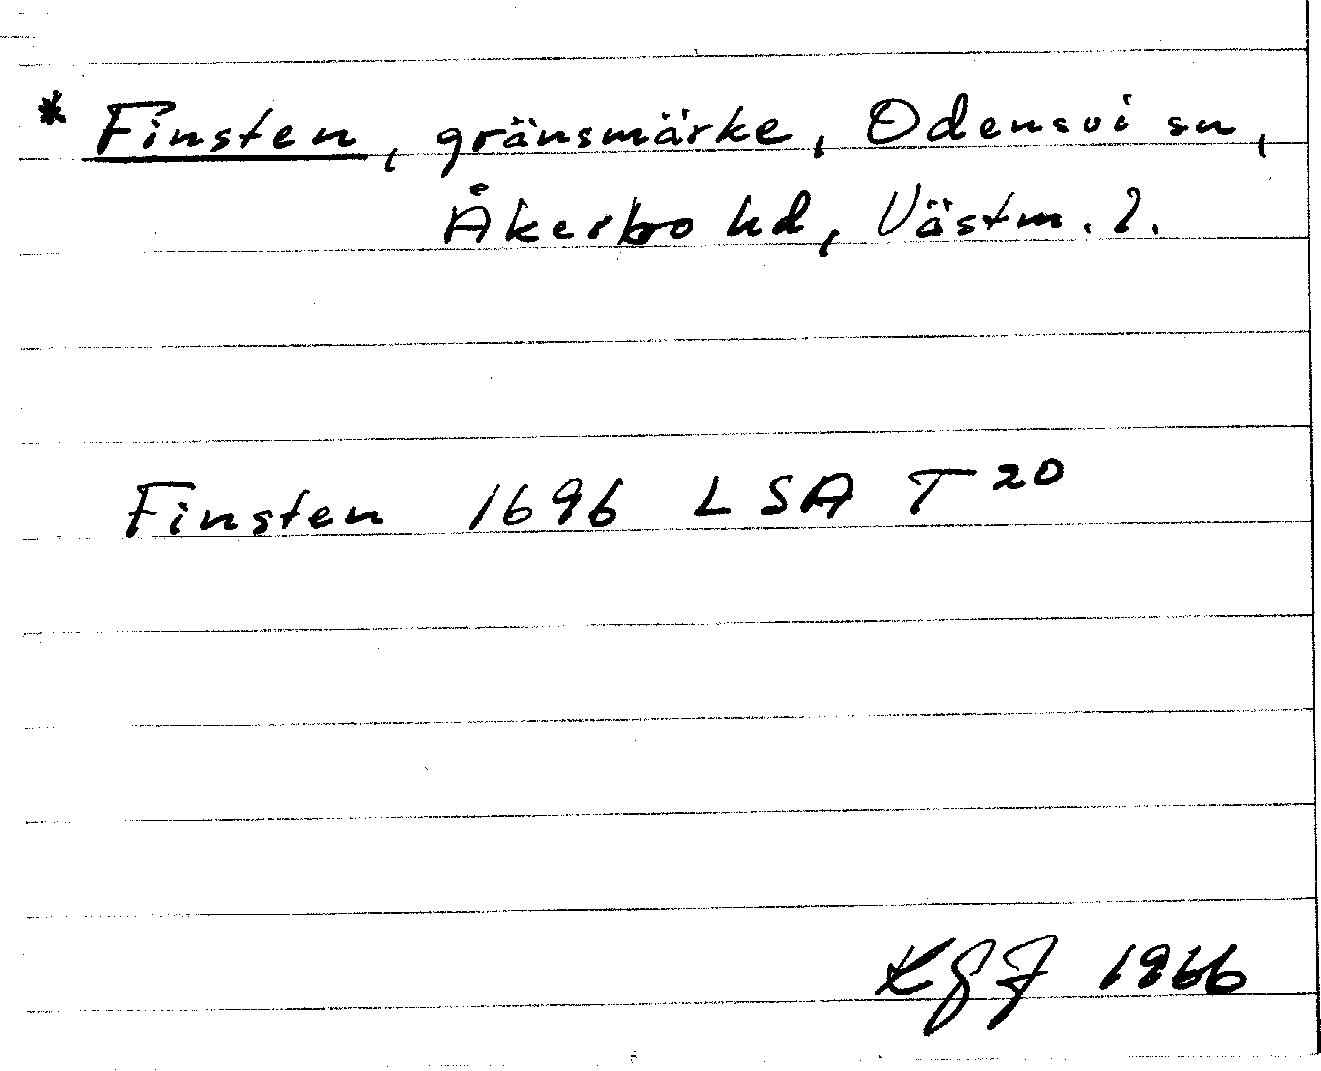 * Finsten, gränsmärke, Odensvi sn,
Åkerbo hd, Västm. l.
Finsten 1696 LSA T 20
KGF 1966